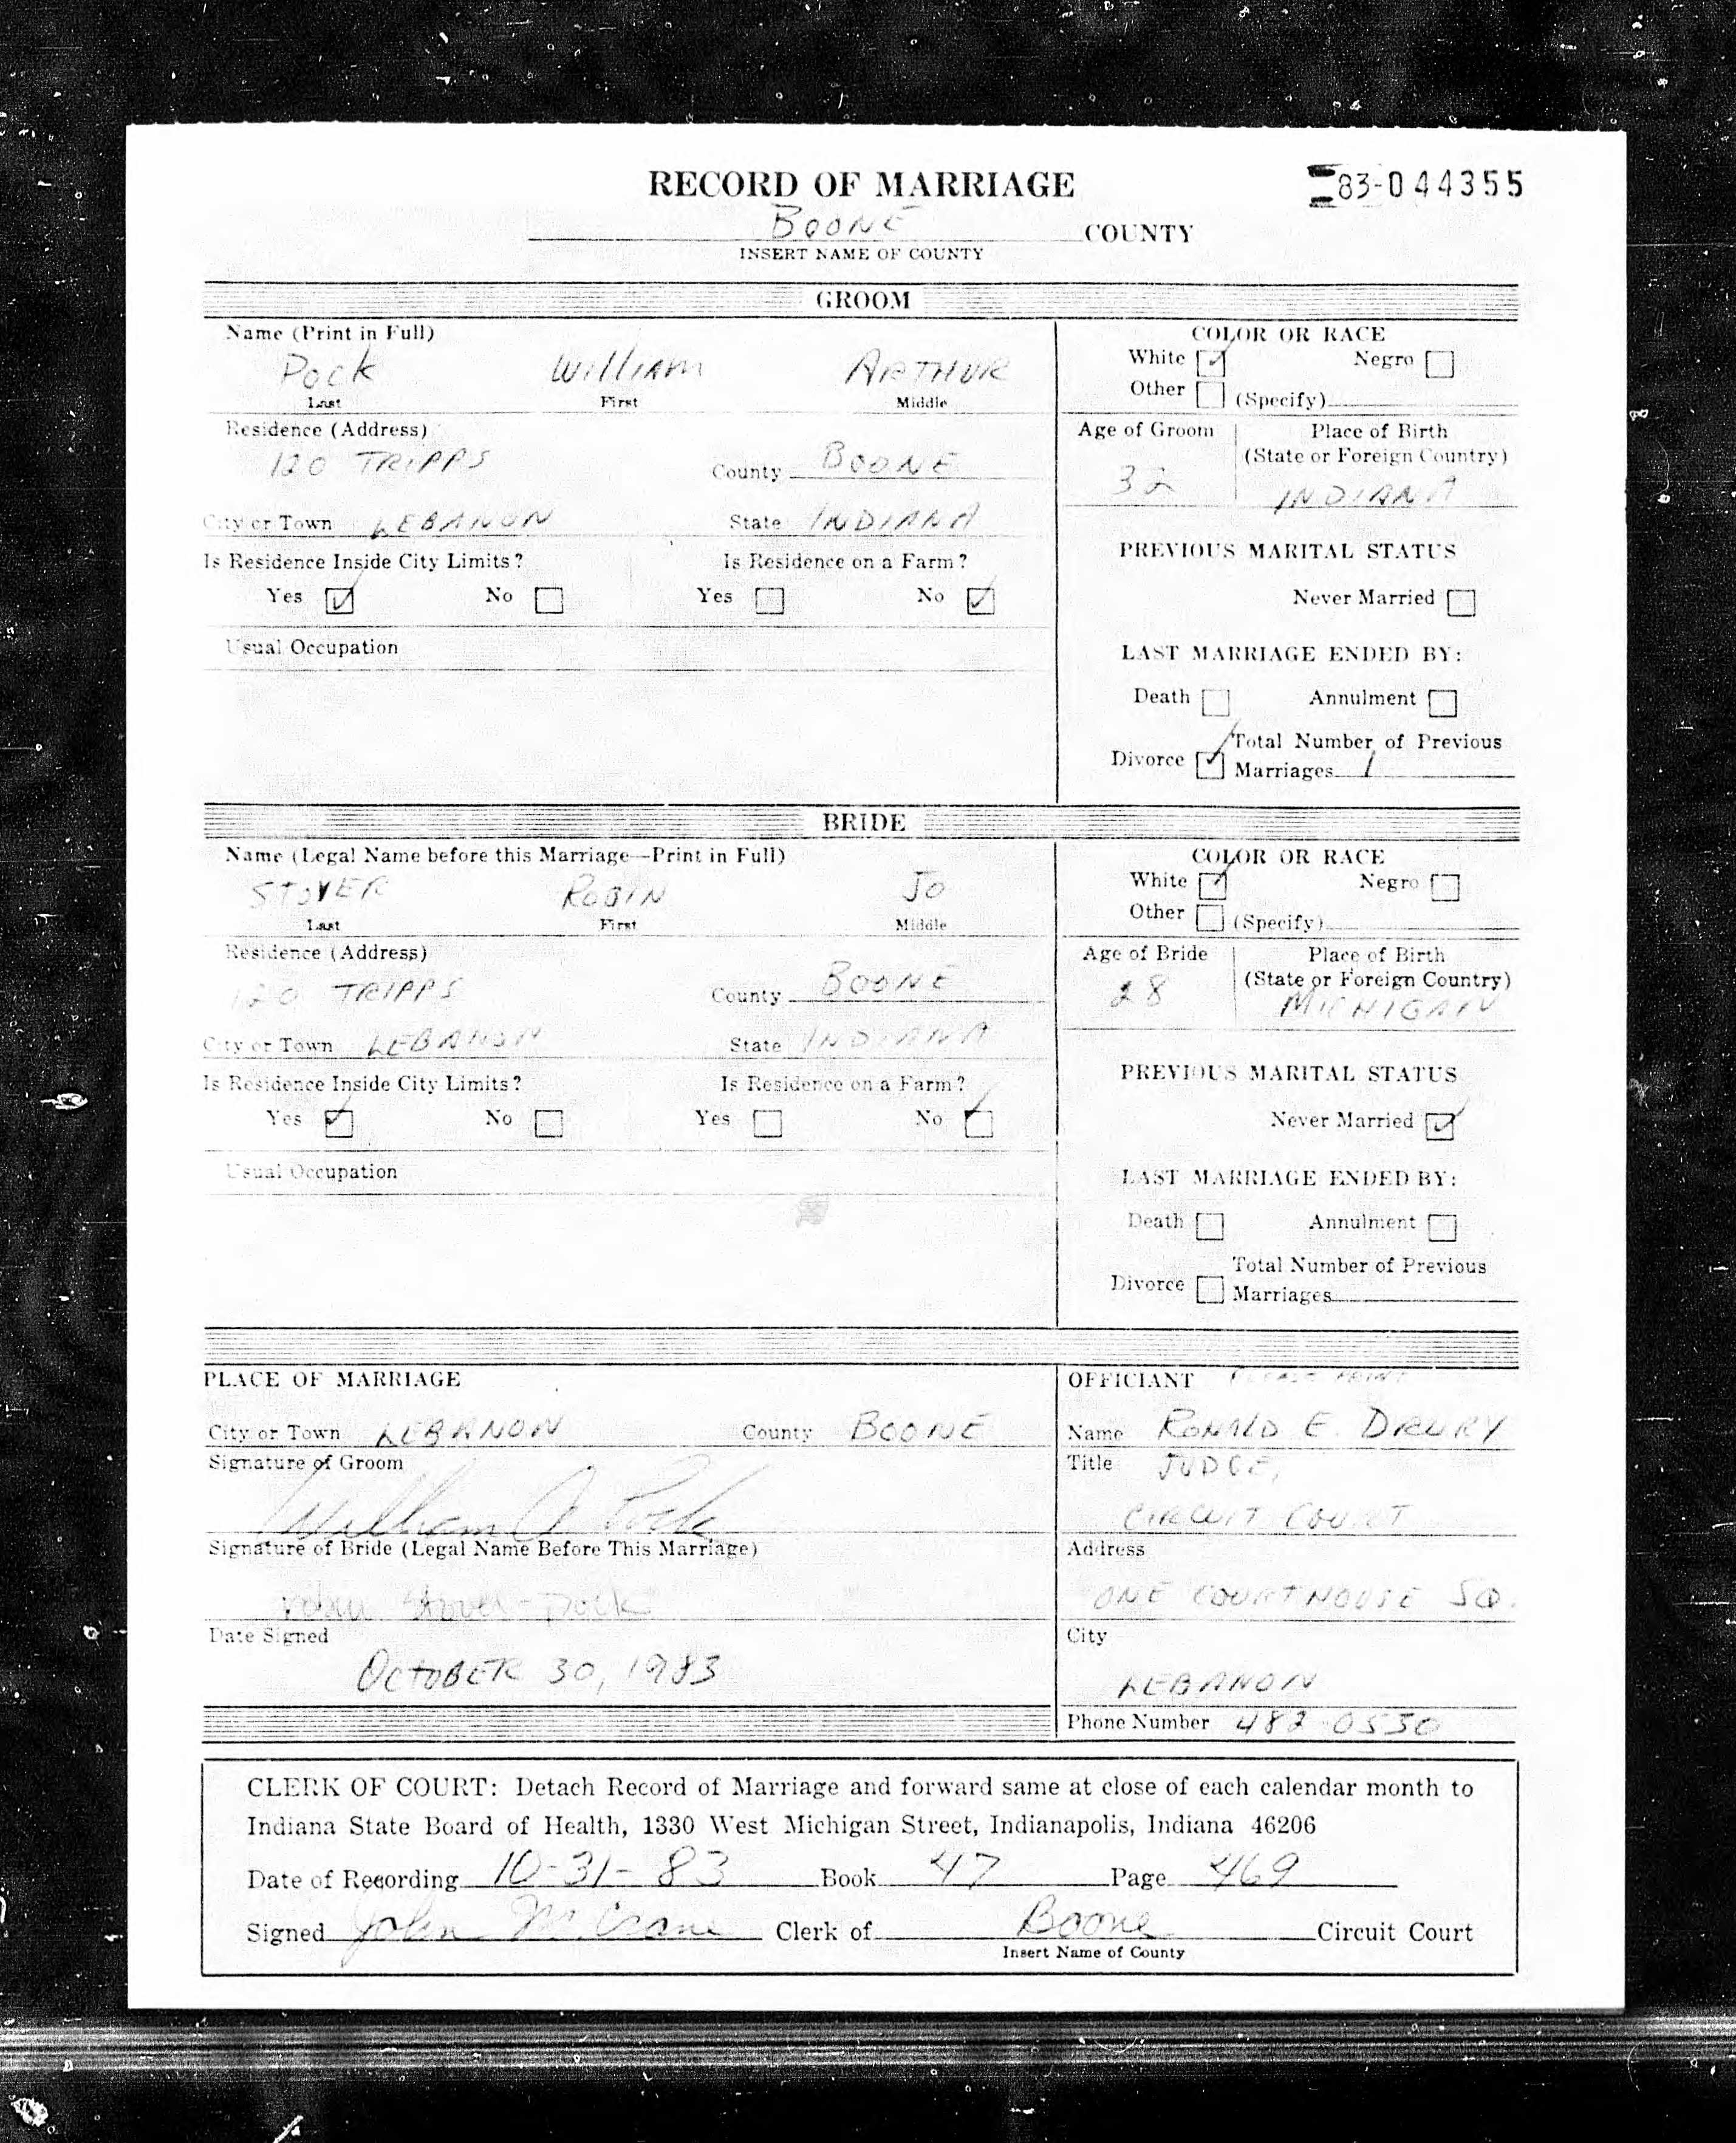 RECORD OF MARRIAGE
83-044355
BOONE COUNTY
INSERT NAME OF COUNTY
GROOM
Name (Print in Full)
POCK WILLIAM ARTHUR
Last First Middle
COLOR OR RACE
White ✓ Negro
Other (Specify)
Residence (Address)
120 TRIPPS County BOONE
City or Town LEBANON State INDIANA
Age of Groom
32
Place of Birth
(State or Foreign Country)
INDIANA
Is Residence Inside City Limits? Is Residence on a Farm?
Yes ✓ No Yes No ✓
Usual Occupation
PREVIOUS MARITAL STATUS
Never Married
LAST MARRIAGE ENDED BY:
Death Annulment
Divorce ✓ Total Number of Previous
Marriages 1
BRIDE
Name (Legal Name before this Marriage—Print in Full)
STOVER ROBIN JO
Last First Middle
COLOR OR RACE
White ✓ Negro
Other (Specify)
Residence (Address)
120 TRIPPS County BOONE
City or Town LEBANON State INDIANA
Age of Bride
28
Place of Birth
(State or Foreign Country)
MICHIGAN
Is Residence Inside City Limits? Is Residence on a Farm?
Yes ✓ No Yes No ✓
Usual Occupation
PREVIOUS MARITAL STATUS
Never Married ✓
LAST MARRIAGE ENDED BY:
Death Annulment
Divorce Total Number of Previous
Marriages
PLACE OF MARRIAGE
City or Town LEBANON County BOONE
Signature of Groom
William A Pock
Signature of Bride (Legal Name Before This Marriage)
Robin Stover-Pock
Date Signed
OCTOBER 30, 1983
OFFICIANT PLEASE PRINT
Name RONALD E. DRURY
Title JUDGE,
CIRCUIT COURT
Address
ONE COURTHOUSE SQ.
City
LEBANON
Phone Number 482-0530
CLERK OF COURT: Detach Record of Marriage and forward same at close of each calendar month to
Indiana State Board of Health, 1330 West Michigan Street, Indianapolis, Indiana 46206
Date of Recording 10-31-83 Book 47 Page 469
Signed John M. Crane Clerk of Boone Circuit Court
Insert Name of County